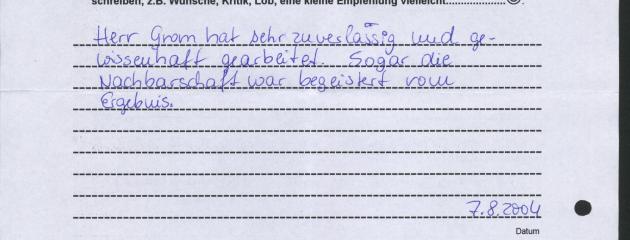 schreiben, z.B. Wünsche, Kritik, Lob, eine kleine Empfehlung vielleicht....................☺.
Herr Grom hat sehr zuverlässig und ge-
wissenhaft gearbeitet. Sogar die
Nachbarschaft war begeistert vom
Ergebnis.
7.8.2004
Datum